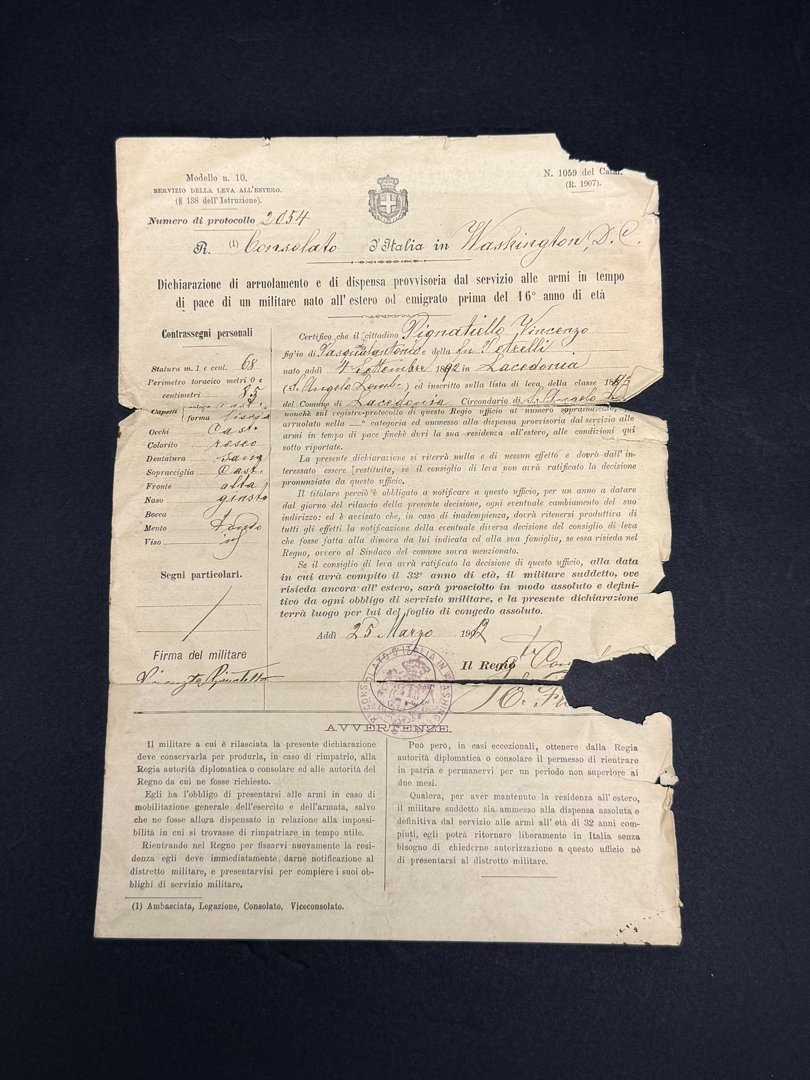 Modello n. 10.
SERVIZIO DELLA LEVA ALL'ESTERO.
(§ 138 dell'Istruzione).
N. 1059 del Catal.
(R. 1907).
Numero di protocollo 2054
R. (1) Consolato d'Italia in Washington, D. C.
Dichiarazione di arruolamento e di dispensa provvisoria dal servizio alle armi in tempo
di pace di un militare nato all'estero od emigrato prima del 16° anno di età
Contrassegni personali
Statura m. 1 e cent. 68
Perimetro toracico metri 0 e
centimetri 85
Capelli colore Cast.
forma liscia
Occhi Cast.
Colorito roseo
Dentatura sana
Sopracciglia Cast.
Fronte alta
Naso giusto
Bocca
Mento Tondo
Viso
Segni particolari.
Firma del militare
Certifico che il cittadino Pignatiello Vincenzo
figlio di Pasqualantonio e della fu Petrelli
nato addì 4 Settembre 1892 in Lacedonia
(S. Angelo Lomb.) ed inscritto sulla lista di leva della classe
del Comune di Lacedonia Circondario di S. Angelo
nonchè sul registro-protocollo di questo Regio ufficio al numero sopraindicato,
arruolato nella categoria ed ammesso alla dispensa provvisoria dal servizio alle
armi in tempo di pace finchè duri la sua residenza all'estero, alle condizioni qui
sotto riportate.
La presente dichiarazione si riterrà nulla e di nessun effetto e dovrà dall'in-
teressato essere restituita, se il consiglio di leva non avrà ratificato la decisione
pronunziata da questo ufficio.
Il titolare perciò è obbligato a notificare a questo ufficio, per un anno a datare
dal giorno del rilascio della presente decisione, ogni eventuale cambiamento del suo
indirizzo: ed è avvisato che, in caso di inadempienza, dovrà ritenersi produttiva di
tutti gli effetti la notificazione della eventuale diversa decisione del consiglio di leva
che fosse fatta alla dimora da lui indicata ed alla sua famiglia, se essa risieda nel
Regno, ovvero al Sindaco del comune sovra menzionato.
Se il consiglio di leva avrà ratificato la decisione di questo ufficio, alla data
in cui avrà compito il 32° anno di età, il militare suddetto, ove
risieda ancora all'estero, sarà prosciolto in modo assoluto e defini-
tivo da ogni obbligo di servizio militare, e la presente dichiarazione
terrà luogo per lui del foglio di congedo assoluto.
Addì 25 Marzo 1912
Il Regio
CONSOLATO D'ITALIA IN WASHING
AVVERTENZE.
Il militare a cui è rilasciata la presente dichiarazione
deve conservarla per produrla, in caso di rimpatrio, alla
Regia autorità diplomatica o consolare ed alle autorità del
Regno da cui ne fosse richiesto.
Egli ha l'obbligo di presentarsi alle armi in caso di
mobilitazione generale dell'esercito e dell'armata, salvo
che ne fosse allora dispensato in relazione alla impossi-
bilità in cui si trovasse di rimpatriare in tempo utile.
Rientrando nel Regno per fissarvi nuovamente la resi-
denza egli deve immediatamente darne notificazione al
distretto militare, e presentarvisi per compiere i suoi ob-
blighi di servizio militare.
Può però, in casi eccezionali, ottenere dalla Regia
autorità diplomatica o consolare il permesso di rientrare
in patria e permanervi per un periodo non superiore ai
due mesi.
Qualora, per aver mantenuto la residenza all'estero,
il militare suddetto sia ammesso alla dispensa assoluta e
definitiva dal servizio alle armi all'età di 32 anni com-
piuti, egli potrà ritornare liberamente in Italia senza
bisogno di chiederne autorizzazione a questo ufficio nè
di presentarsi al distretto militare.
(1) Ambasciata, Legazione, Consolato, Viceconsolato.